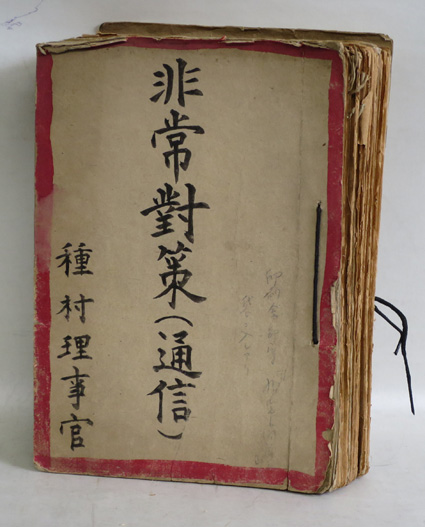 非常對策(通信)
種村理事官